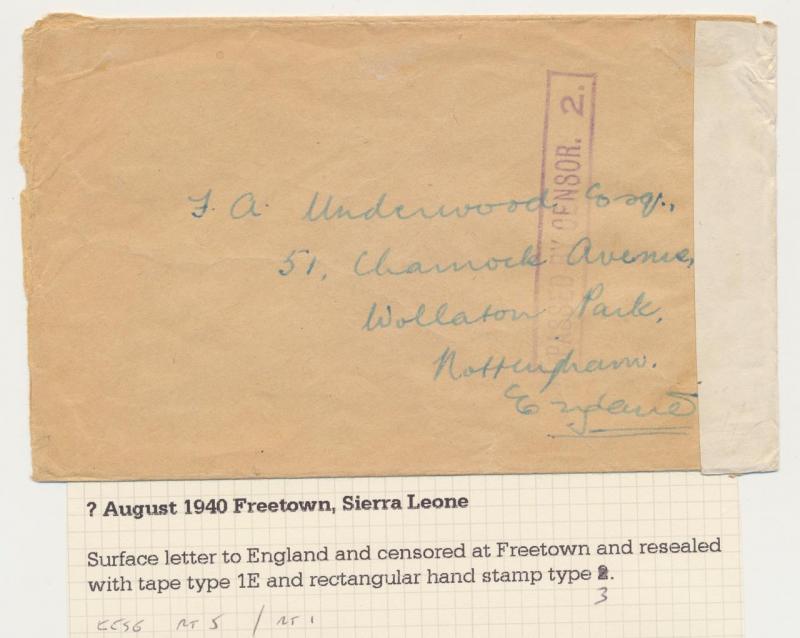 PASSED BY CENSOR. 2.
F. A. Underwood Esq.,
51, Charnock Avenue,
Wollaton Park,
Nottingham.
England
? August 1940 Freetown, Sierra Leone
Surface letter to England and censored at Freetown and resealed
with tape type 1E and rectangular hand stamp type 2.
3
RT 5 / RT 1